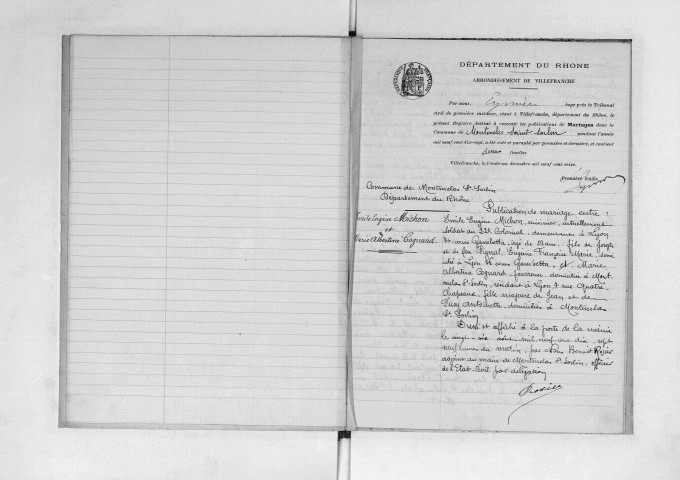 DÉPARTEMENT DU RHONE
ARRONDISSEMENT DE VILLEFRANCHE
Par nous, Juge près le Tribunal
civil de première instance, séant à Villefranche, département du Rhône, le
présent Registre destiné à recevoir les publications de Mariages dans la
Commune de Montmelas Saint Sorlin pendant l'année
mil neuf cent dix-sept, a été coté et paraphé par première et dernière, et contient
deux feuilles.
Villefranche, le trente-un décembre mil neuf cent seize.
Première feuille
Commune de Montmelas St-Sorlin
Département du Rhône
Emile Eugène Michon
et
Marie Albertine Cognard
Publication de mariage entre :
Emile Eugène Michon, cuisinier, actuellement
soldat au 22e Colonial, demeurant à Lyon
cours Gambetta, agé de ans, fils de Joseph
et de feu Pignal, Eugénie Françoise Marie, domi
cilié à Lyon cours Gambetta, et Marie
Albertine Cognard, domiciliée à Mont
melas St-Sorlin, résidant à Lyon 4 rue Quatre
Chapeaux, fille majeure de Jean et de
Antoinette domiciliés à Montmelas
St Sorlin
Dressé et affiché à la porte de la mairie
le vingt-six août mil neuf cent dix-sept
neuf heures du matin, par Nous Benoit Rosier
adjoint au maire de Montmelas St-Sorlin, officier
de l'Etat-Civil par délégation
Rosier